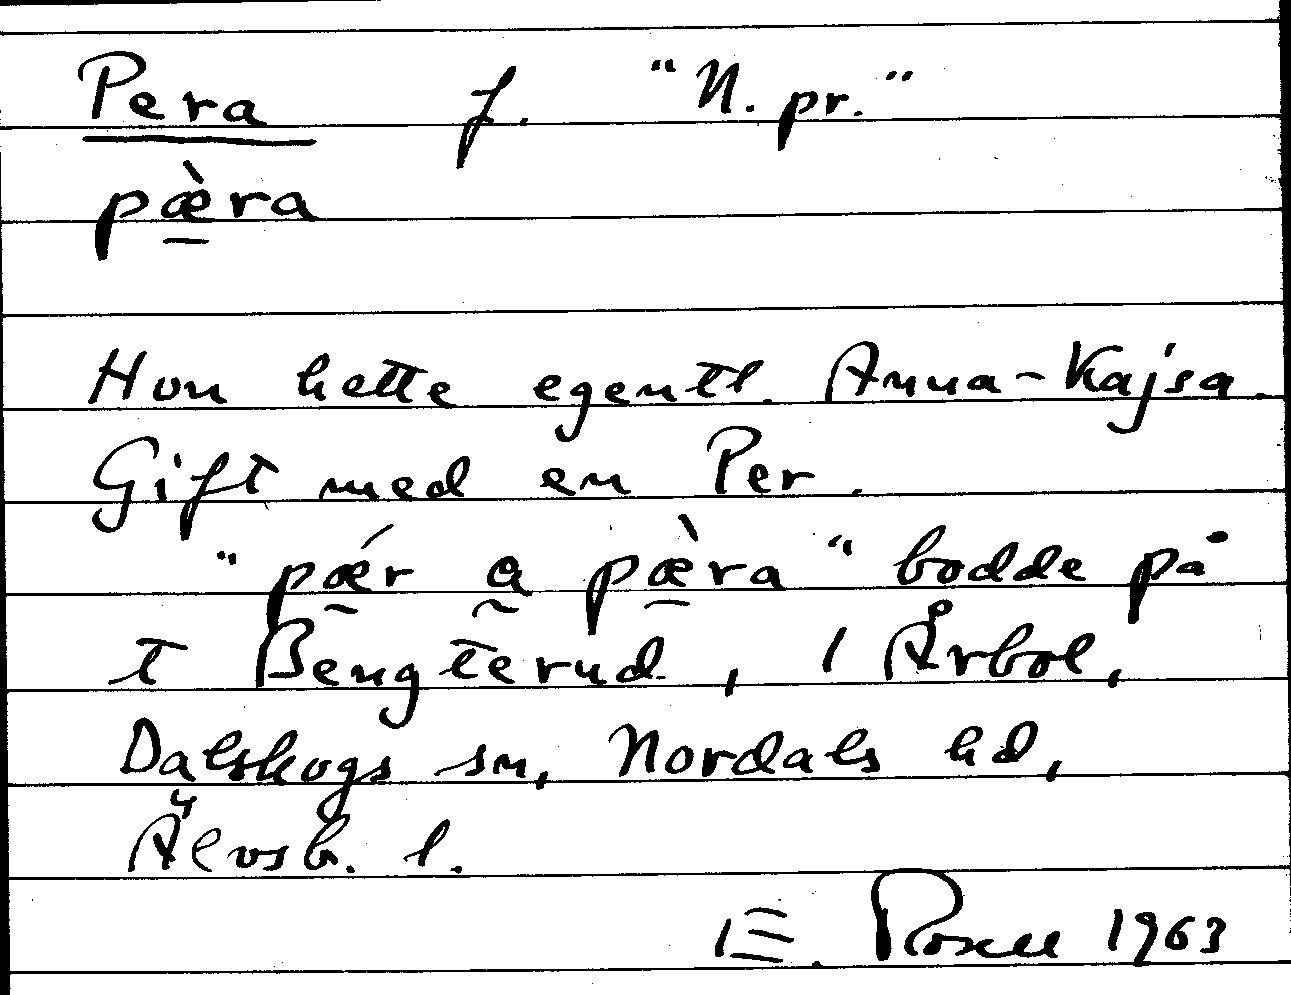 Pera f. "N. pr."
pæ̀ra
Hon hette egentl. Anna-Kajsa.
Gift med en Per.
"pǽr a pæ̀ra" bodde på
t Bengterud, i Årbol,
Dalskogs sn, Nordals hd,
Älvsb. l.
E. Rosell 1963